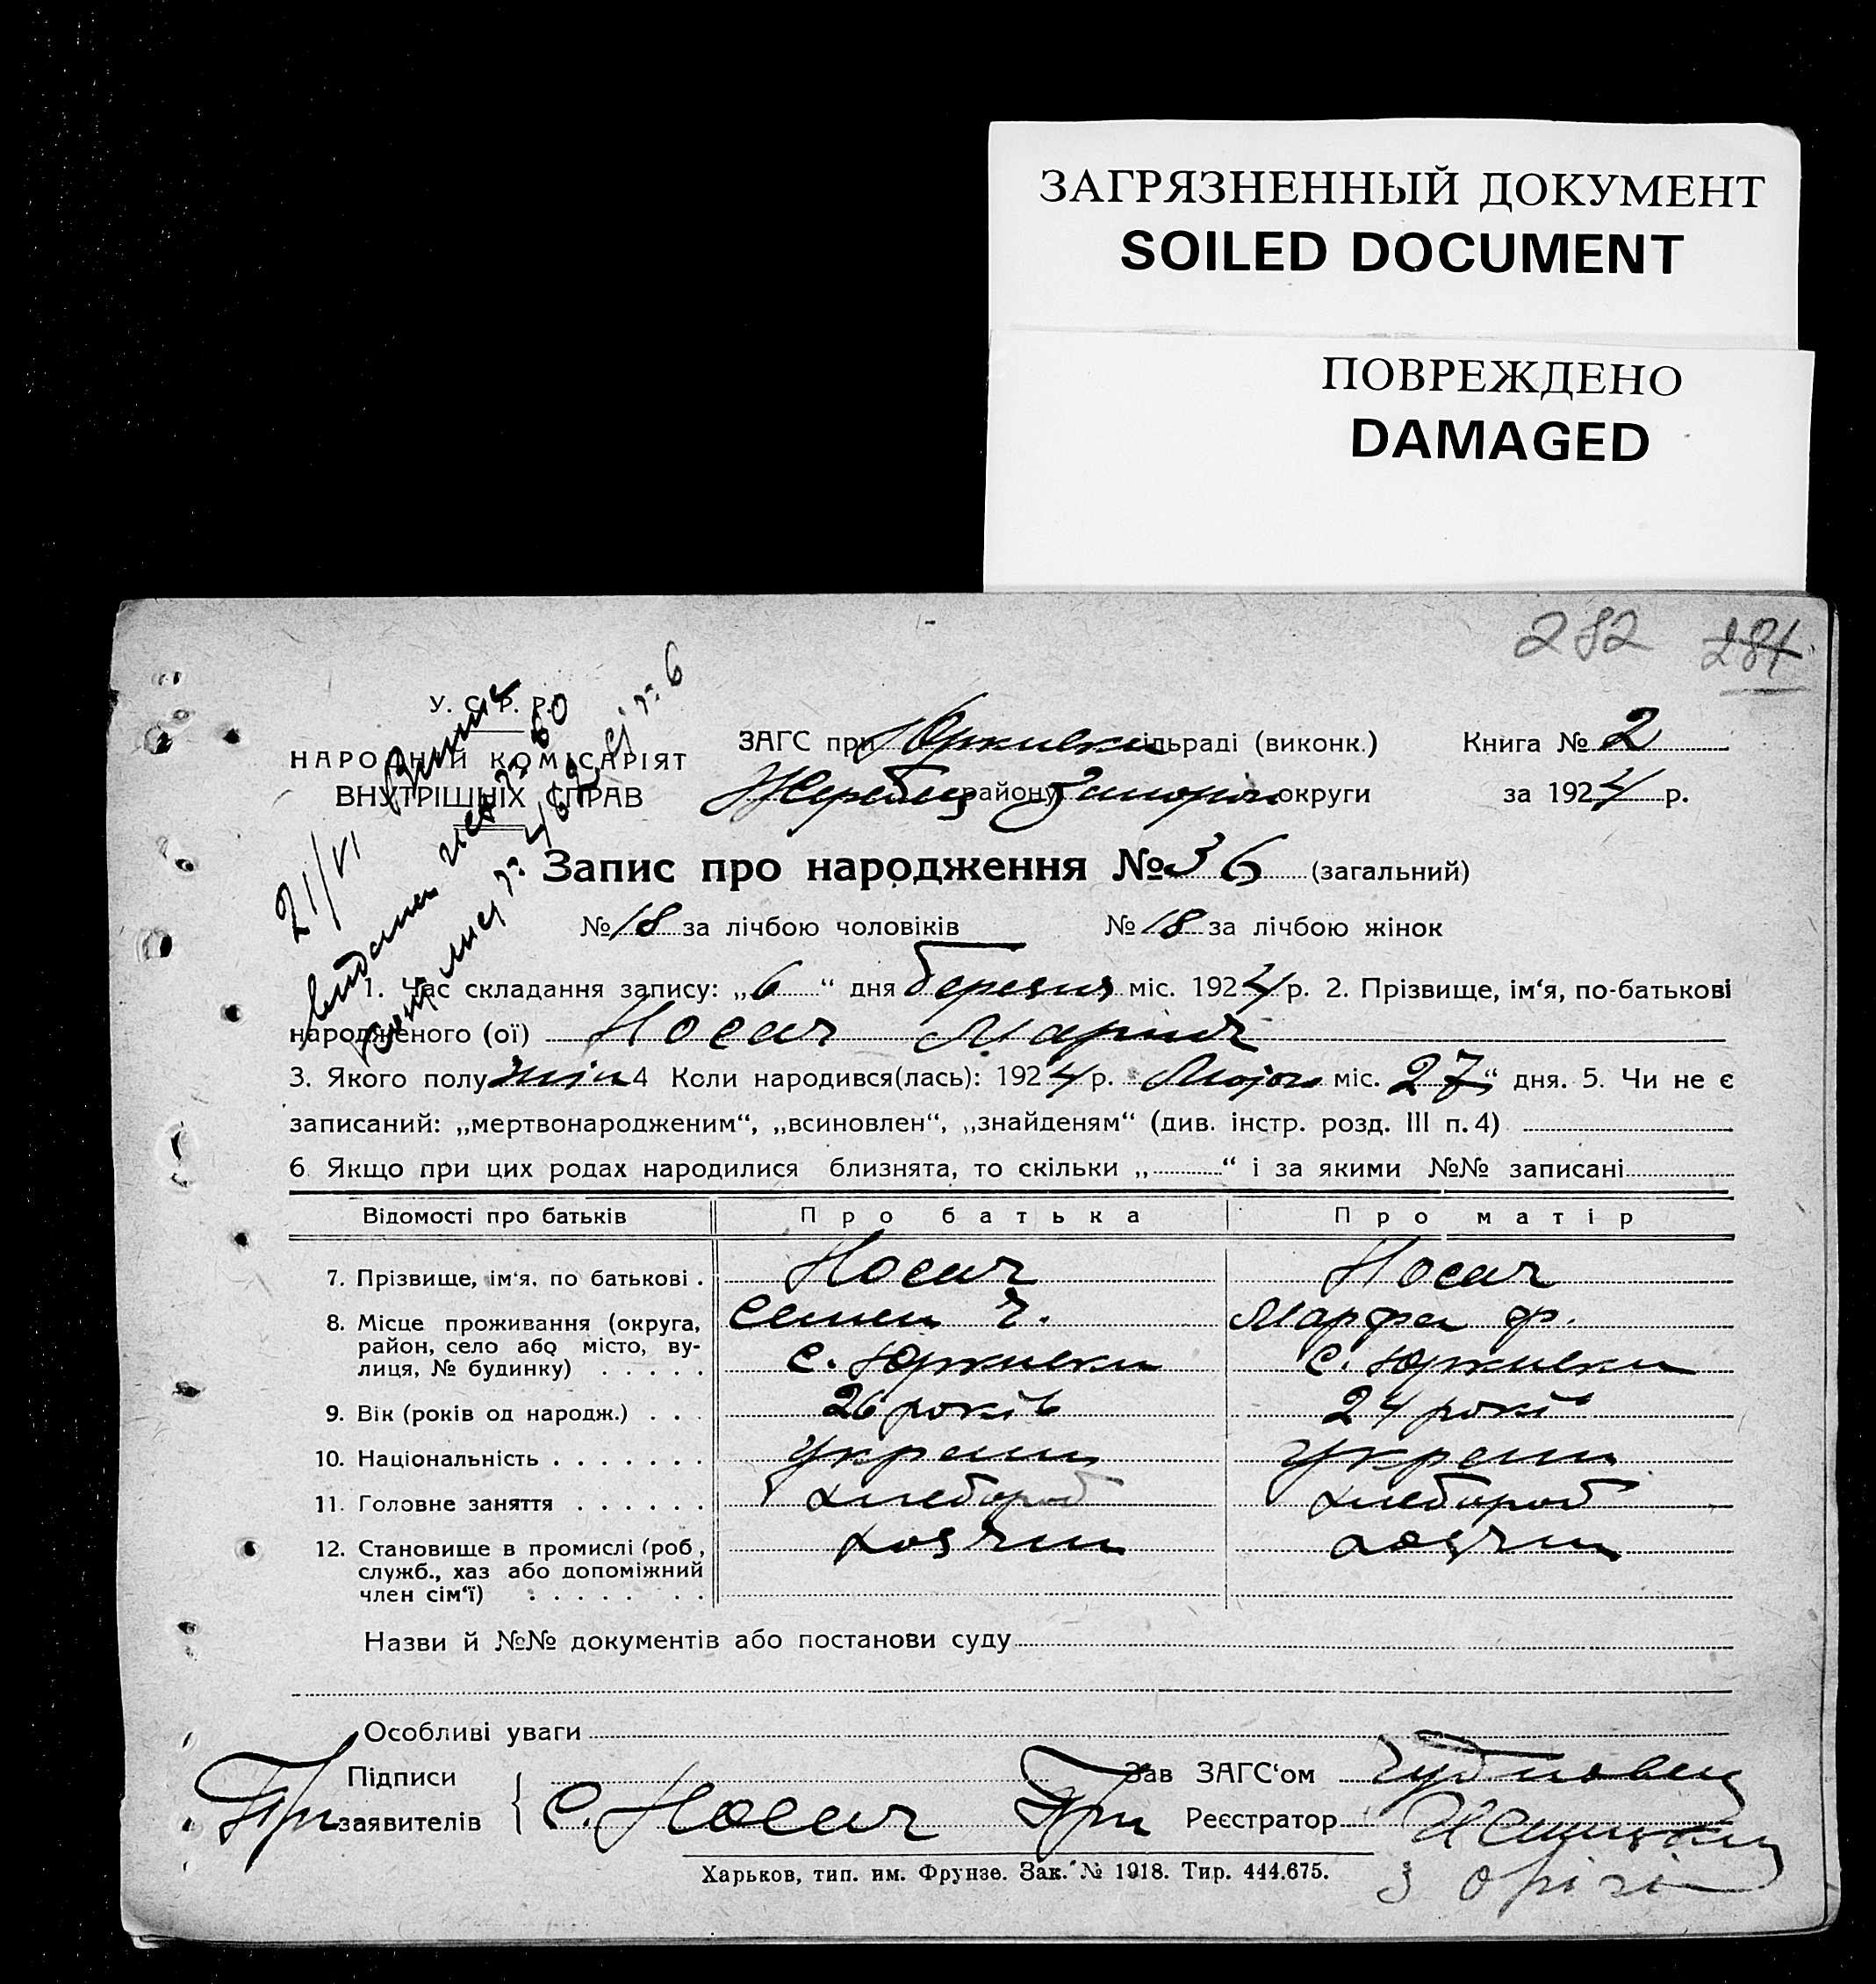 ЗАГРЯЗНЕННЫЙ ДОКУМЕНТ
SOILED DOCUMENT
ПОВРЕЖДЕНО
DAMAGED
282 284
У. С. Р. Р.
НАРОДНІЙ КОМІСАРІЯТ
ВНУТРІШНІХ СПРАВ
ЗАГС при Юркивки сільраді (виконк.) Книга № 2
Жеребец району Запорож округи за 1924 р.
21/VI
Запис про народження № 36 (загальний)
№ 18 за лічбою чоловіків № 18 за лічбою жінок
1. Час складання запису: „6“ дня березня міс. 1924 р. 2. Прізвище, ім‘я, по-батькові
народженого (ої) Носач Мария
3. Якого полу жін 4 Коли народився(лась): 1924 р. міс. 27“ дня. 5. Чи не є
записаний: „мертвонародженим“, „всиновлен“, „знайденям“ (див. інстр. розд. III п. 4)
6. Якщо при цих родах народилися близнята, то скільки „ “ і за якими №№ записані
Відомості про батьків Про батька Про матір
7. Прізвище, ім‘я, по батькові . Носач Носач
8. Місце проживання (округа, Семен Марфа ф.
район, село або місто, ву-
лиця, № будинку) . . . . . с. Юркивки с. Юркивки
9. Вік (років од народж.) . . . 26 років 24 років
10. Національність . . . . . . . украин украин
11. Головне заняття . . . . . . хлебороб хлебороб
12. Становище в промислі (роб, хозяин хозяин
служб., хаз або допоміжний
член сім‘ї) : . . . . . . .
Назви й №№ документів або постанови суду
Особливі уваги
Підписи Зав ЗАГС‘ом
заявителів С. Носач Реєстратор
Харьков, тип. им. Фрунзе. Зак. № 1918. Тир. 444.675.